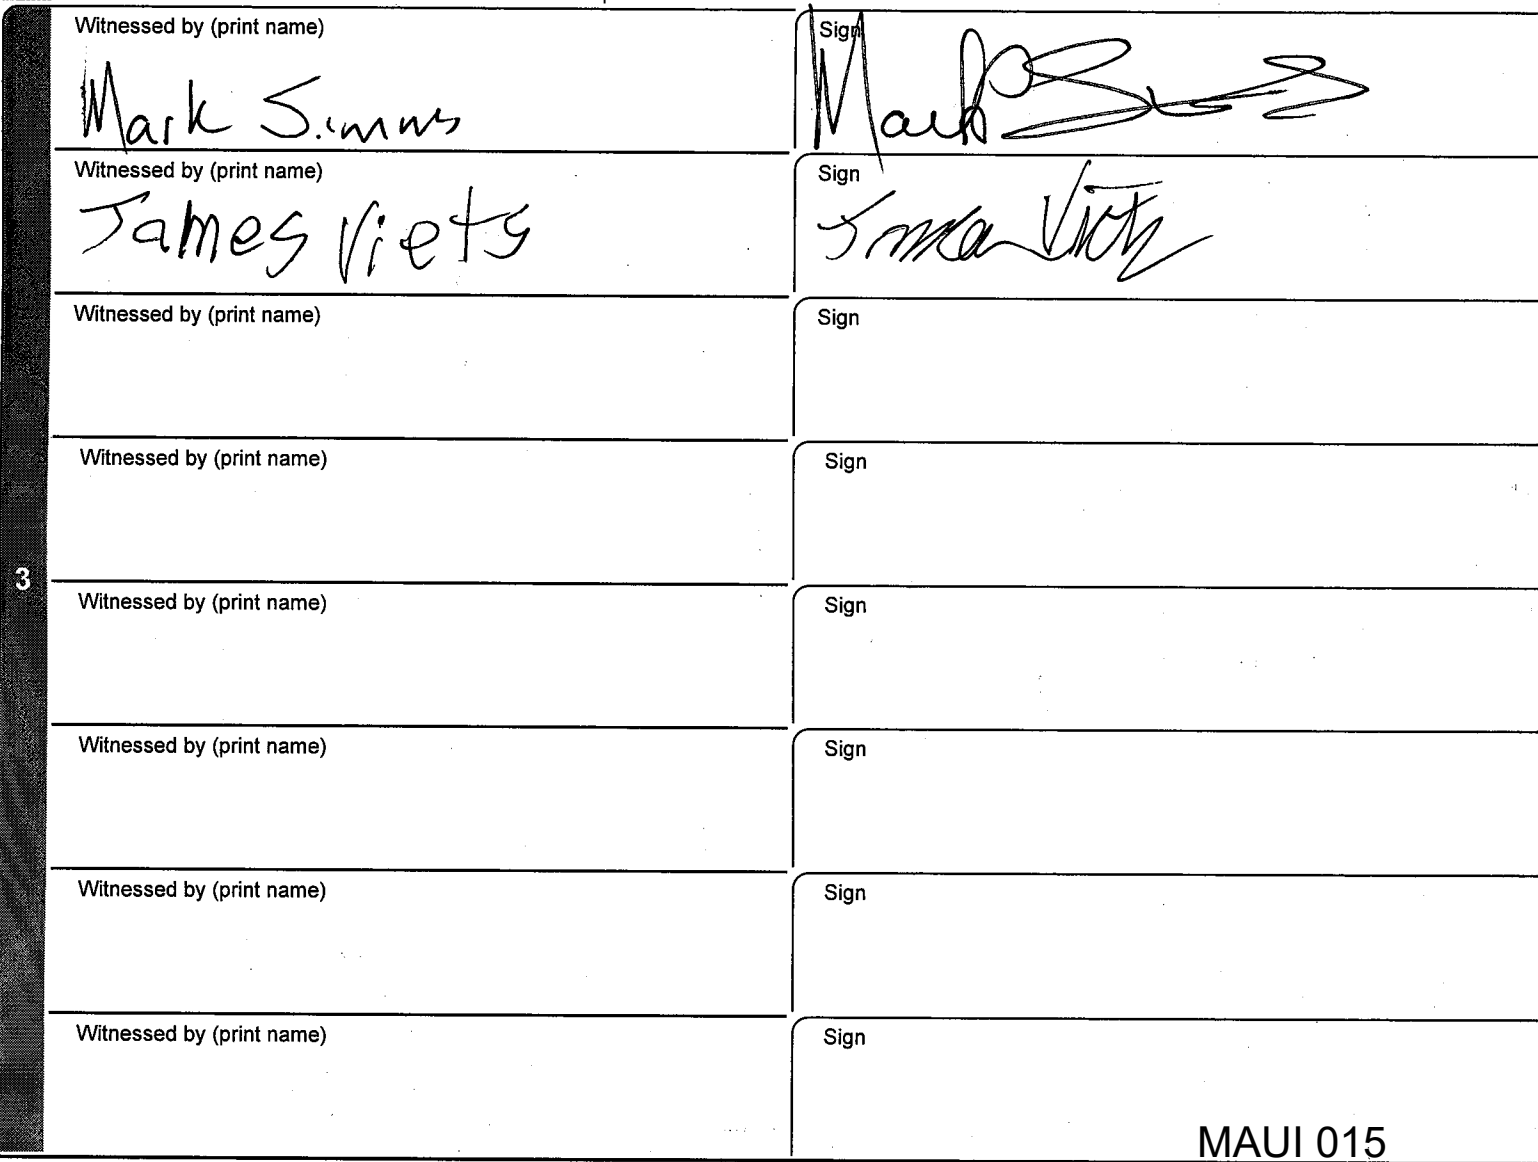 Witnessed by (print name) Sign
Mark Simms Mark Simms
Witnessed by (print name) Sign
James Viets James Viets
Witnessed by (print name) Sign
Witnessed by (print name) Sign
3
Witnessed by (print name) Sign
Witnessed by (print name) Sign
Witnessed by (print name) Sign
Witnessed by (print name) Sign
MAUI 015